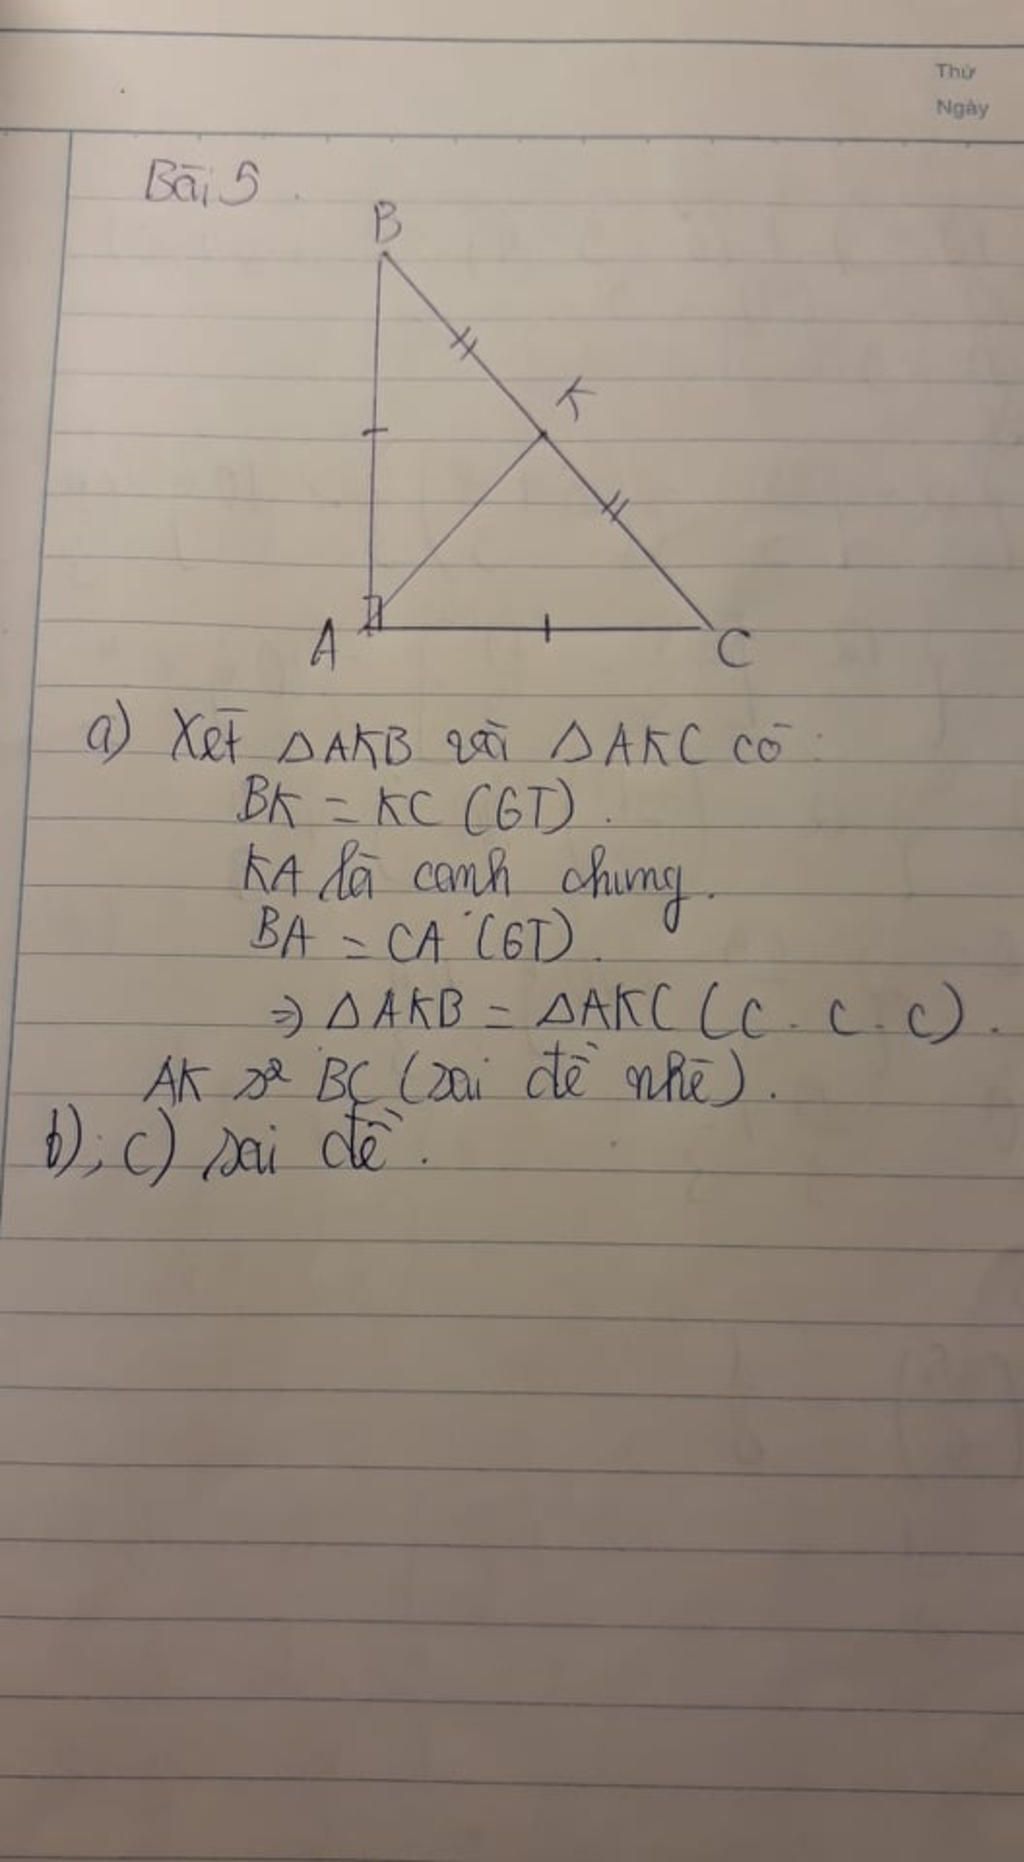 Thứ
Ngày
Bài 5.
B
K
A
C
a) Xét ΔAKB và ΔAKC có:
BK = KC (GT).
KA là cạnh chung.
BA = CA (GT).
⇒ ΔAKB = ΔAKC (c.c.c).
AK BC (sai đề nhé).
b); c) sai đề.